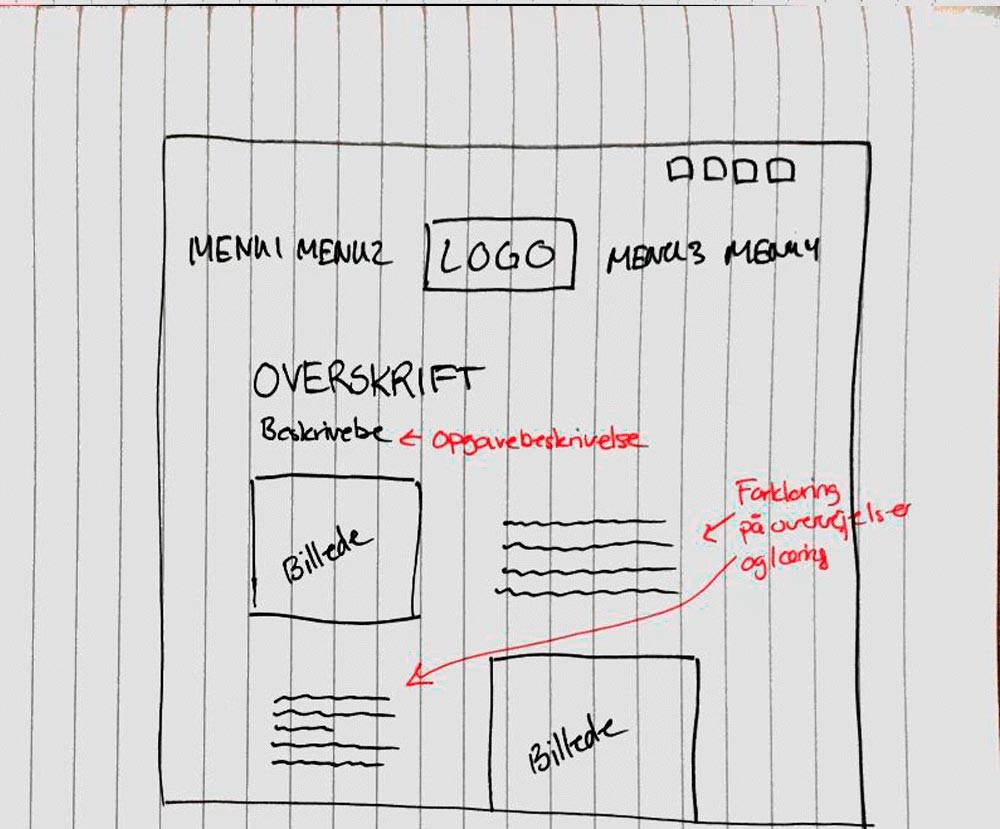 MENU1 MENU2 LOGO MENU3 MENU4
OVERSKRIFT
Beskrivelse ← Opgavebeskrivelse
Billede
Forklaring
på overvejelser
og læring
Billede